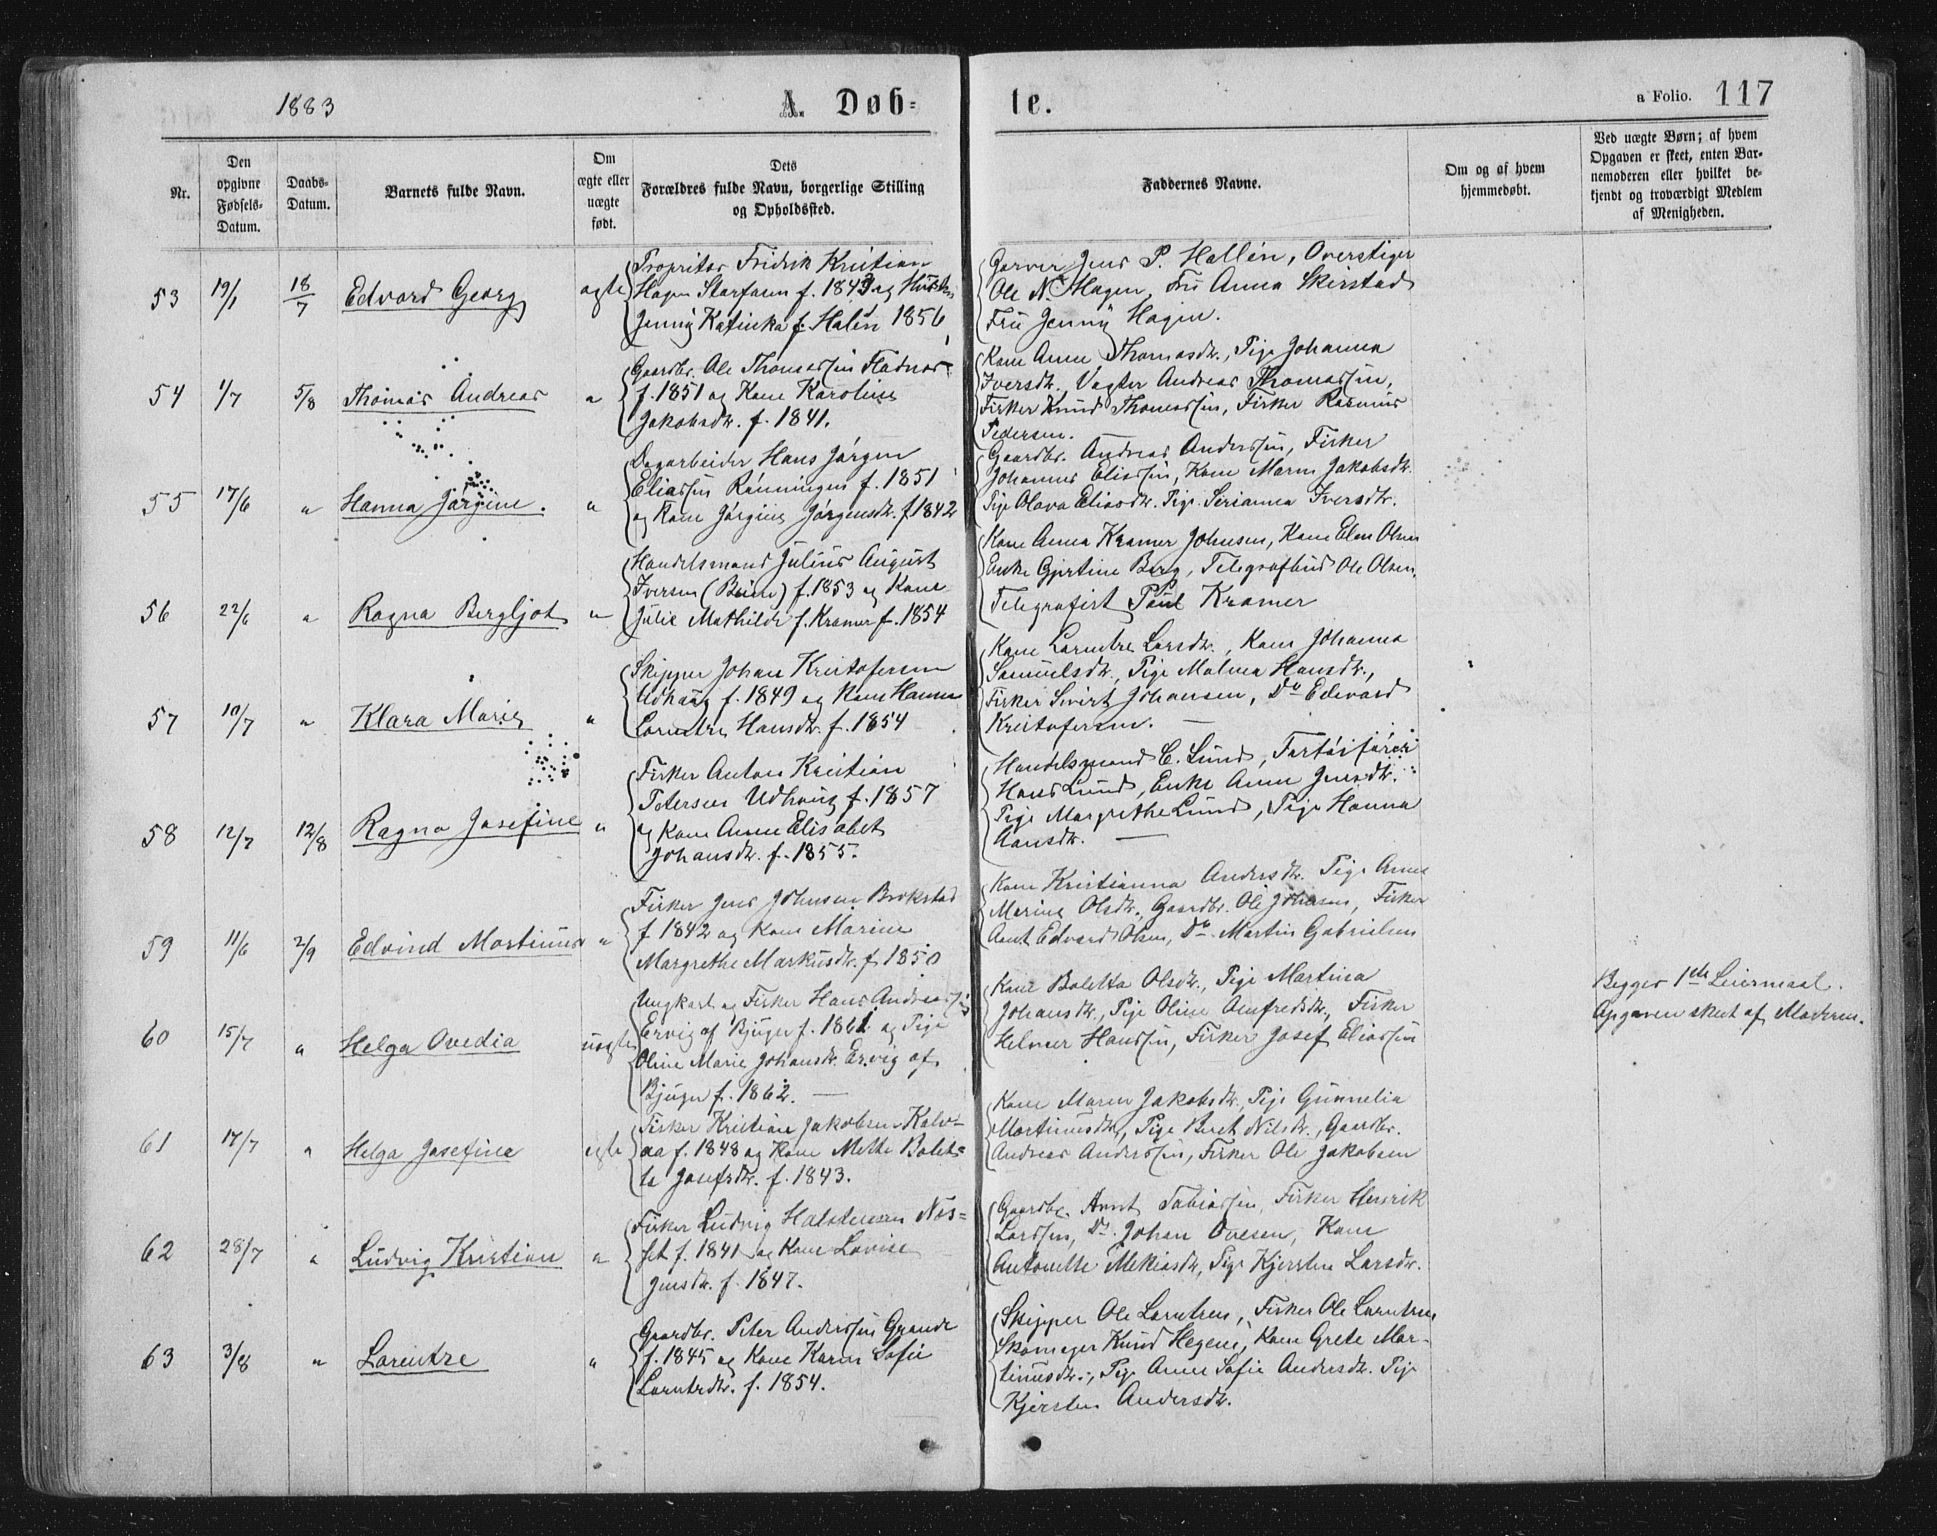 1883
A. Døb=
te.
a Folio. 117
Nr.
Den opgivne Fødsels-Datum.
Daabs-Datum.
Barnets fulde Navn.
Om ægte eller uægte født.
Dets Forældres fulde Navn, borgerlige Stilling og Opholdssted.
Faddernes Navne.
Om og af hvem hjemmedøbt.
Ved uægte Børn; af hvem Opgaven er skeet, enten Barnemoderen eller hvilket bekjendt og troværdigt Medlem af Menigheden.
53 19/1 18/7 Edvard Georg ægte
Propritær Fridrik Kristian
Hagen Storfosen f. 1843 og
Jenny Katinka f. Halin 1856
Garver Jens P. Hallin, Overstiger
Ole N. Hagen, Fru Anna Skirstad
Fru Jenny Hagen.
54 1/7 5/8 Thomas Andreas "
Gaardbr. Ole Thomassen Fladnes
f. 1851 og Kone Karoline
Jakobsdtr. f. 1841.
Kone Anne Thomasdtr., Pige Johanna
Iversdtr. Vagter Andreas Thomassen,
Fisker Knud Thomassen, Fisker Rasmus
Pedersen.
55 17/6 " Hanna Jørgine. "
Dagarbeider Hans Jørgen
Eliassen Rønningen f. 1851
og Kone Jørgine Jørgensdtr. f. 1842
Gaardbr. Andreas Anderssen, Fisker
Johannes Eliassen, Kone Maren Jakobsdtr.
Pige Olava Eliasdtr. Pige Serianna Iversdtr.
56 22/6 " Ragna Bergljot "
Handelsmand Julius August
Iversen (Beian) f. 1853 og Kone
Julie Mathilde f. Kramer f. 1854
Kone Anna Kramer Johnsen, Kone Elen Olsen
Enke Gjertine Berg, Telegrafbud Ole Olsen,
Telegrafist Paul Kramer
57 10/7 " Klara Marie "
Skipper Johan Kristofersen
Udhaug f. 1849 og Kone Hanna
Lorentze Hansdtr. f. 1854
Kone Lorentze Larsdtr., Kone Johanna
Samuelsdtr., Pige Malena Hansdtr.,
Fisker Sivert Johansen, Do Edevard
Kristofersen. —
58 12/7 12/8 Ragna Josefine "
Fisker Anton Kristian
Petersen Udhaug f. 1857
og Kone Anne Elisabet
Johansdtr. f. 1855.
Handelsmand C. Lund, Fartøifører
Hans Lund, Enke Anne Jensdtr.
Pige Margrethe Lund, Pige Hanna
Hansdtr. —
59 11/6 2/9 Edvind Martinus "
Fisker Jens Johnsen Brekstad
f 1842 og Kone Marine
Margrethe Markusdtr. f 1850
Kone Kristianna Andersdtr. Pige Anne
Marine Olsdtr. Gaardbr. Ole Johnsen, Fisker
Arnt Edvard Olsen, Do. Martin Gabrielsen
60 15/7 " Helga Ovedia uægte
Ungkarl og Fisker Hans Andreassen
Ervig af Bjugn f. 1861 og Pige
Oline Marie Johansdtr. Ervig af
Bjugn f. 1862. —
Kone Boletta Olsdtr., Pige Martina
Johansdtr., Pige Oline Arnfredsdtr., Fisker
Helmer Hanssen, Fisker Josef Eliassen
Begges 1ste Leiermaal.
Opgaven skeet af Moderen.
61 17/7 " Helga Josefine ægte
Fisker Kristian Jakobsen Kalv-
aa f. 1848 og Kone Mette Bolet-
ta Josefsdtr. f. 1843.
Kone Maren Jakobsdtr., Pige Gunnelia
Martinusdtr., Pige Beret Nilsdtr., Gaardbr.
Andreas Anderssen, Fisker Ole Jakobsen
62 28/7 " Ludvig Kristian "
Fisker Ludvig Halstensen Næs=
set f. 1841 og Kone Lovise
Jensdtr. f. 1847.
Gaardbr. Arnt Tobiassen, Fisker Henrik
Larssen, Do. Johan Ovesen, Kone
Antonette Mekiasdtr., Pige Kjersten Larsdtr.
63 3/8 " Lorentze "
Gaardbr. Peter Anderssen Grande
f. 1845 og Kone Karen Sofie
Lorentsdtr. f. 1854.
Skipper Ole Lorentzen, Fisker Ole Lorentzen
Skomager Knud Hegens, Kone Grete Mar-
tinusdtr., Pige Anne Sofie Andersdtr. Pige
Kjersten Andersdtr.